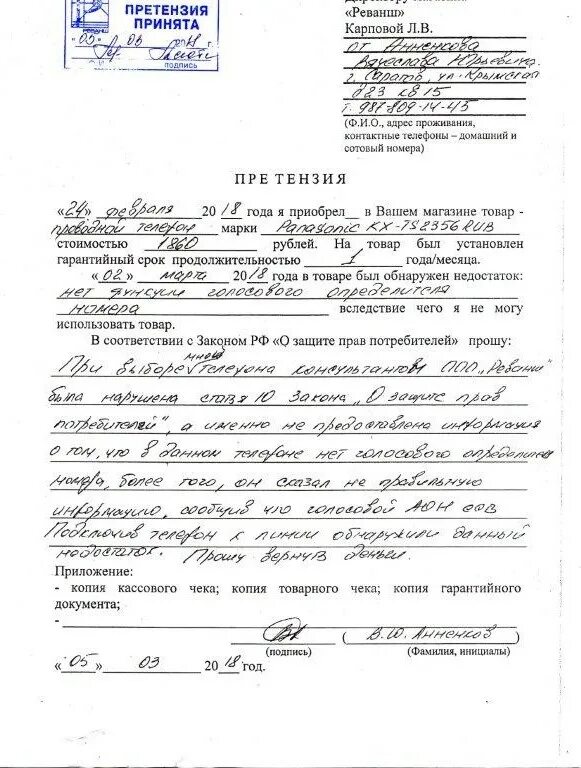 ПРЕТЕНЗИЯ
ПРИНЯТА
"05" 03
подпись
«Реванш»
Карповой Л.В.
от Анненкова
Вячеслава Юрьевича
г. Саратов, ул. Крымская
д 23 кв 15
т. 987-809-14-45
(Ф.И.О., адрес проживания,
контактные телефоны – домашний и
сотовый номера)
ПРЕТЕНЗИЯ
«24» февраля 2018 года я приобрел в Вашем магазине товар -
проводной телефон марки Panasonic KX-TS2356RUB
стоимостью 1860 рублей. На товар был установлен
гарантийный срок продолжительностью 1 года/месяца.
«02» марта 2018 года в товаре был обнаружен недостаток:
нет функции голосового определителя
номера вследствие чего я не могу
использовать товар.
В соответствии с Законом РФ «О защите прав потребителей» прошу:
При выборе мною телефона консультантом ООО „Реванш"
была нарушена статья 10 Закона „О защите прав
потребителей", а именно не предоставлена информация
о том, что в данном телефоне нет голосового определителя
номера, более того, он сказал не правильную
информацию, сообщив что голосовой АОН есть
Подключив телефон к линии обнаружили данный
недостаток. Прошу вернуть деньги.
Приложение:
- копия кассового чека; копия товарного чека; копия гарантийного
документа;
-
( В.Ю. Анненков )
(подпись) (Фамилия, инициалы)
«05» 03 2018 год.